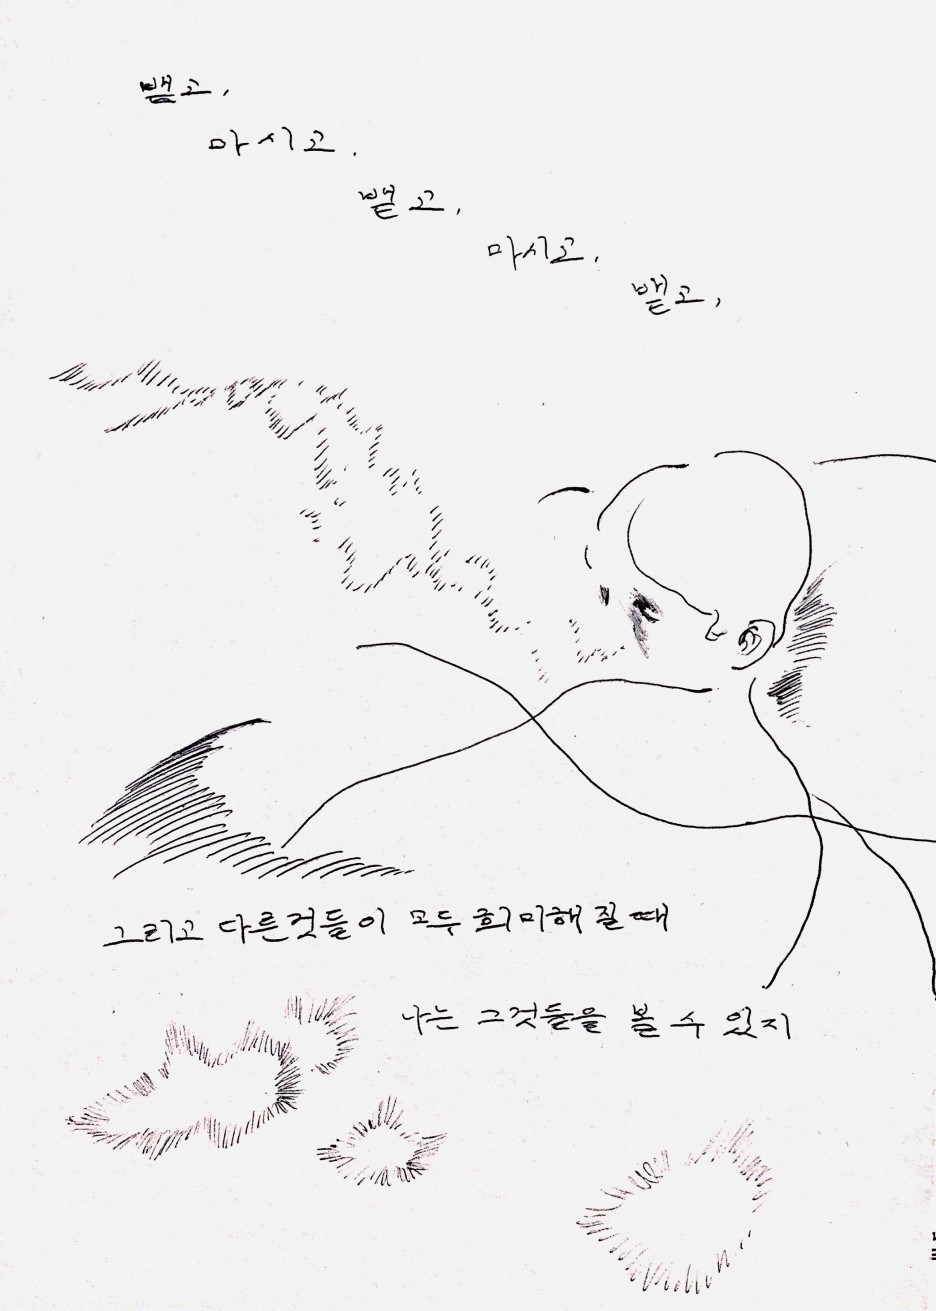 뱉고,
마시고.
뱉고,
마시고,
뱉고,
그리고 다른것들이 모두 희미해 질 때
나는 그것들을 볼 수 있지